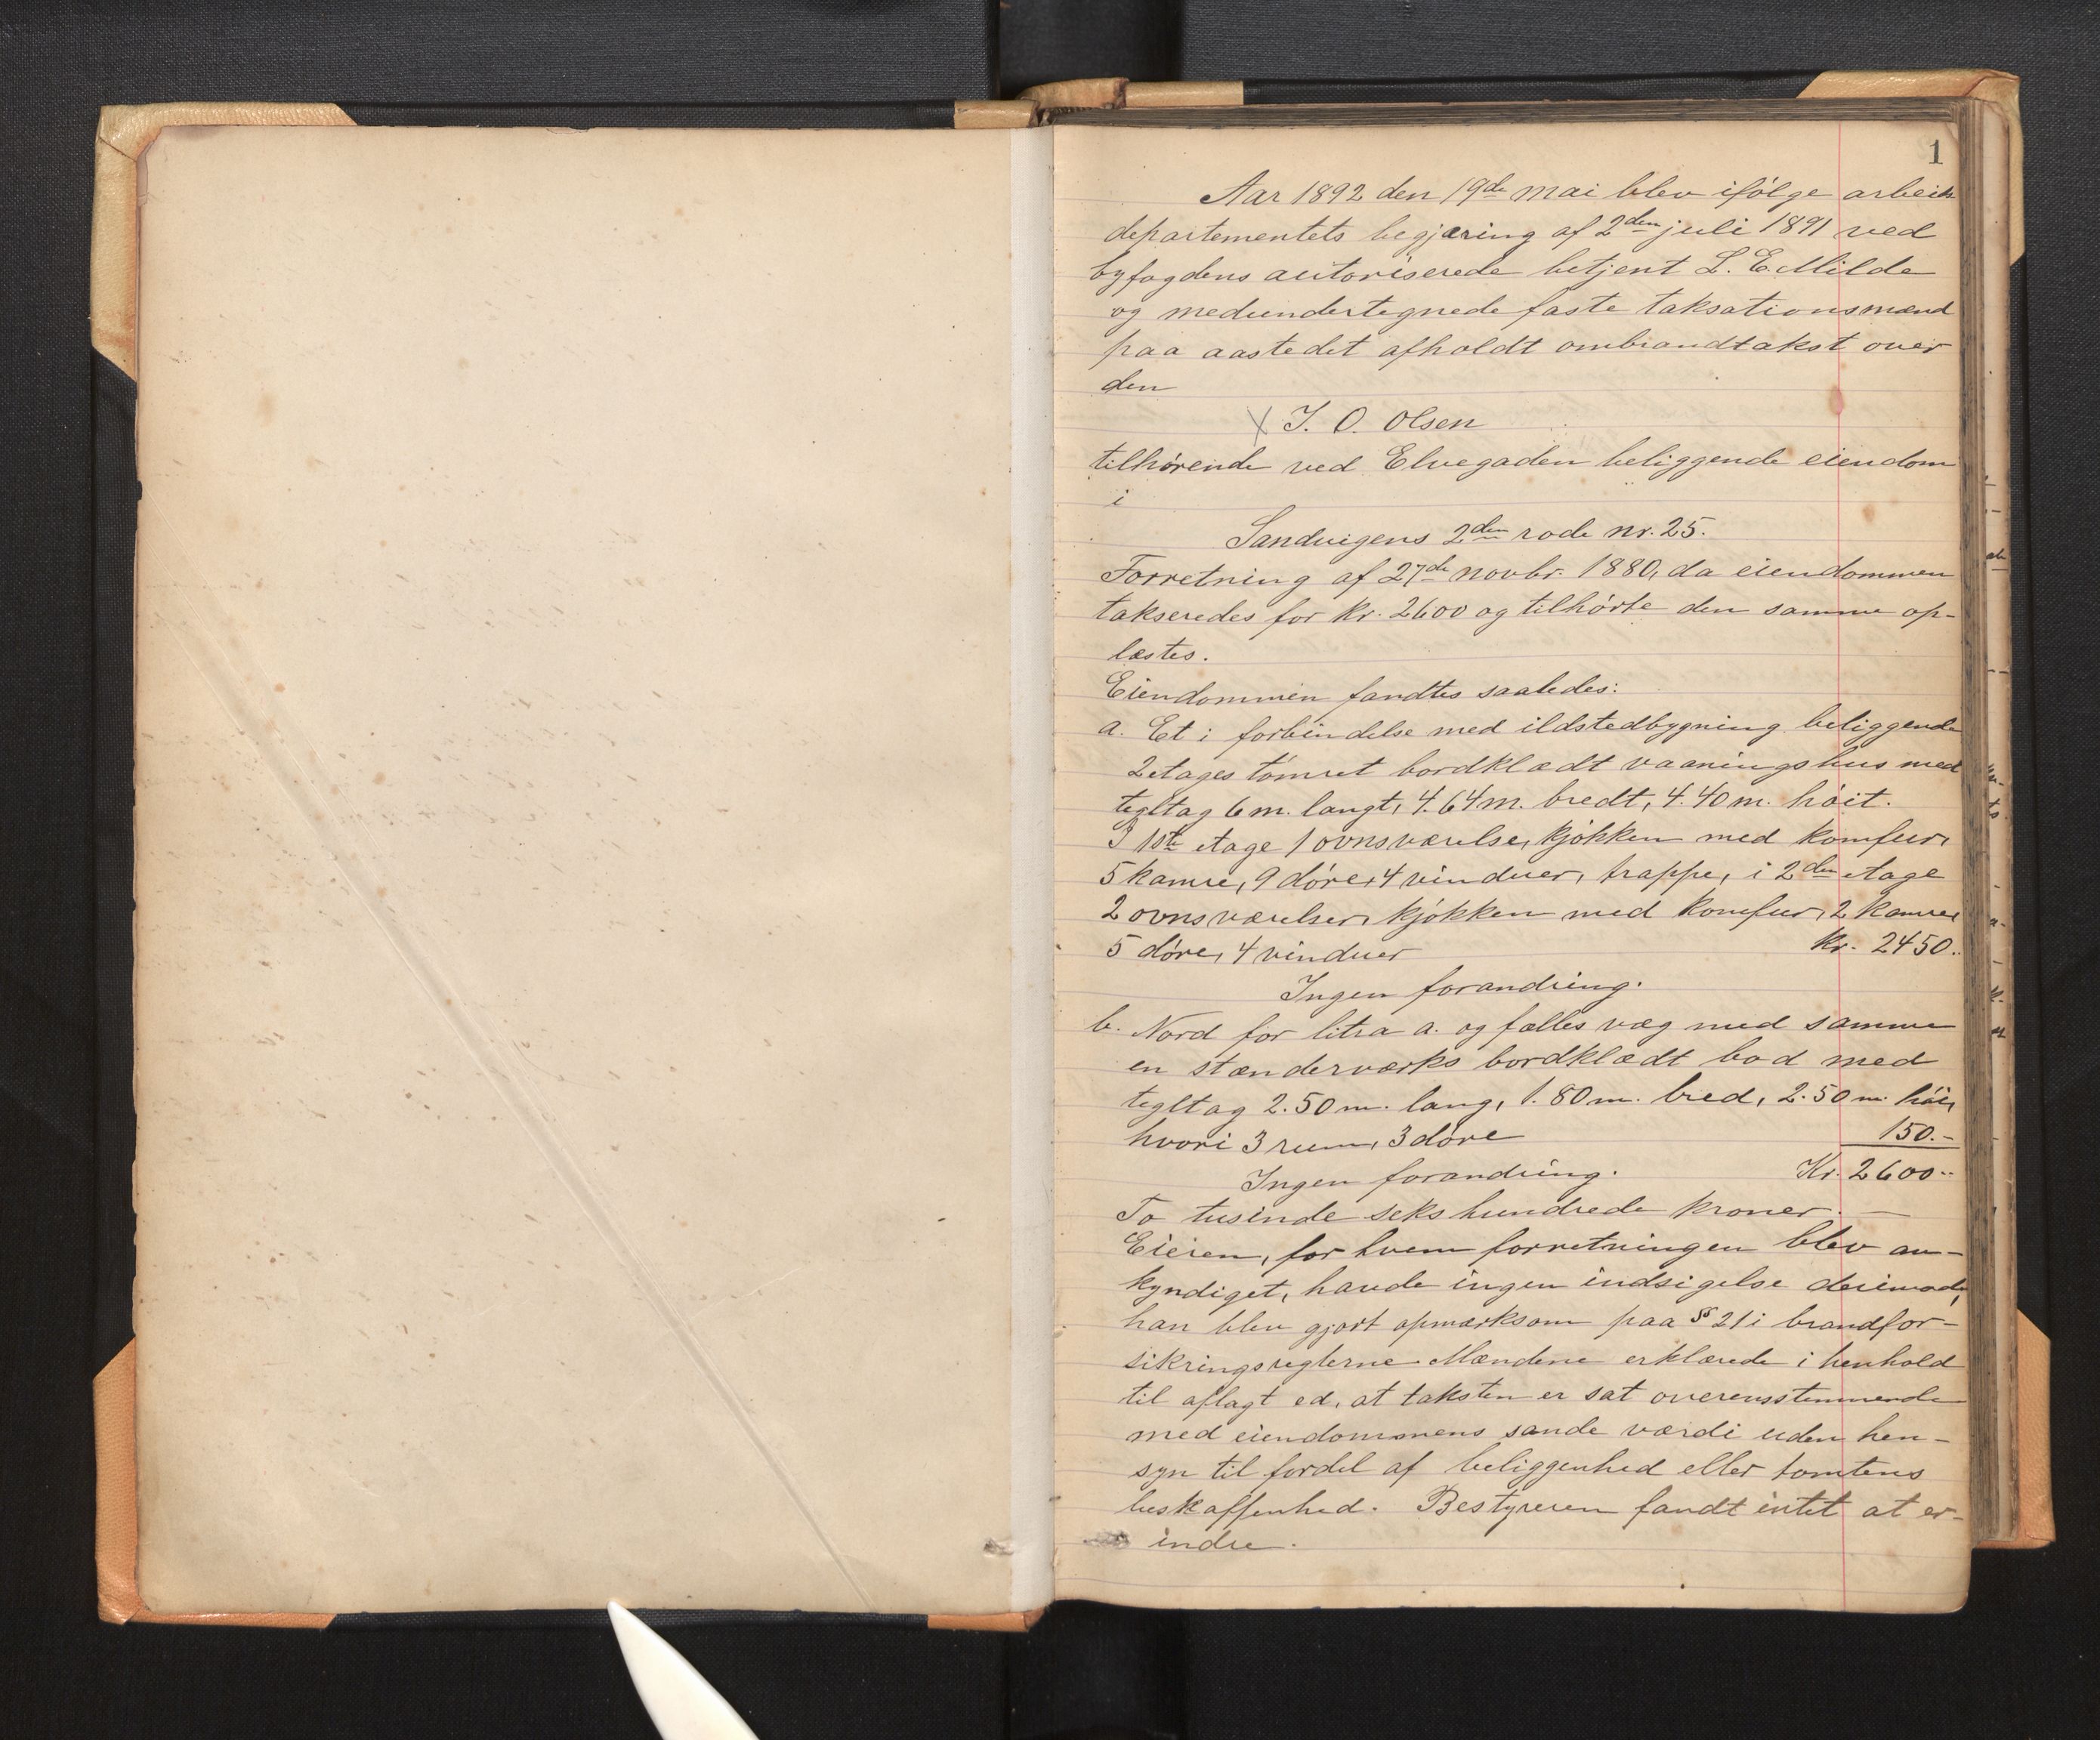 1
Aar 1892 den 19de mai blev ifølge arbeids
departementets begjæring af 2den juli 1891 ved
byfogdens autoriserede betjent L. E. Milde
og medundertegnede faste taksationsmænd
paa aastedet afholdt ombrandtakst over
den
X J. O. Olsen
tilhørende ved Elvegaden beliggende eiendom
i
Sandvigens 2den rode nr. 25.
Forretning af 27de novbr. 1880, da eiendommen
takseredes for kr. 2600 og tilhørte den samme op-
læstes.
Eiendommen fandtes saaledes:
a. Et i forbindelse med ildstedbygning beliggende
2 etages tømret bordklædt vaaningshus med
tegltag 6 m. langt, 4.64 m. bredt, 4.40 m. høit.
I 1ste etage 1 ovnsværelse, kjøkken med komfur,
5 kamre, 9 døre, 4 vinduer, trappe, i 2den etage
2 ovnsværelser, kjøkken med komfur, 2 kamre,
5 døre, 4 vinduer kr. 2450.
Ingen forandring.
b. Nord for litra a. og fælles væg med samme
en stænderværks bordklædt bod med
tegltag 2.50 m. lang, 1.80 m. bred, 2.50 m. høi,
hvori 3 rum, 3 døre 150.-
Ingen forandring. Kr. 2600.-
To tusinde seks hundrede kroner. —
Eieren, for hvem forretningen blev an-
kyndiget, havde ingen indsigelse derimod,
han blev gjort opmærksom paa § 21 i brandfor-
sikringsreglerne. Mændene erklærede i henhold
til aflagt ed, at taksten er sat overensstemmende
med eiendommens sande værdi uden hen-
syn til fordel af beliggenhed eller tomtens
beskaffenhed. Bestyreren fandt intet at er-
indre.